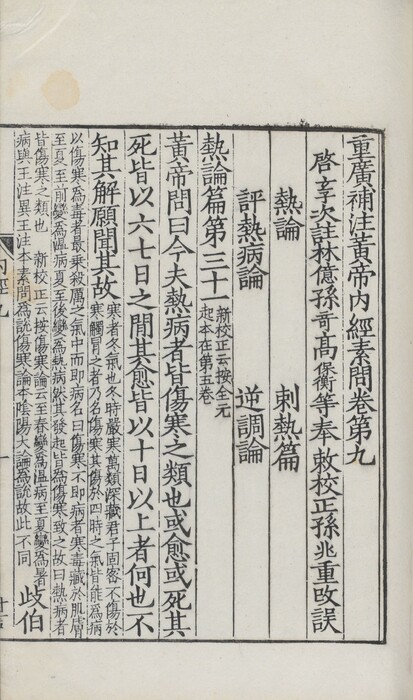 重廣補注黃帝內經素問卷第九
啓玄次註林億孫奇高保衡等奉敕校正孫兆重改誤
熱論 刺熱篇
評熱病論 逆調論
熱論篇第三十一新校正云按全元起本在第五卷
黃帝問曰今夫熱病者皆傷寒之類也或愈或死其
死皆以六七日之間其愈皆以十日以上者何也不
知其解願聞其故寒者冬氣也冬時嚴寒萬類深藏君子固密不傷於
寒觸冒之者乃名傷寒其傷於四時之氣皆能爲病
以傷寒爲毒者最乗殺厲之氣中而即病名曰傷寒不即病者寒毒藏於肌膚
至夏至前變爲溫病夏至後變爲熱病然其發起皆爲傷寒致之故曰熱病者
皆傷寒之類也 新校正云按傷寒論云至春變爲溫病至夏變爲暑
病與王注異王注本素問爲說傷寒論本陰陽大論爲說故此不同
歧伯
內經九